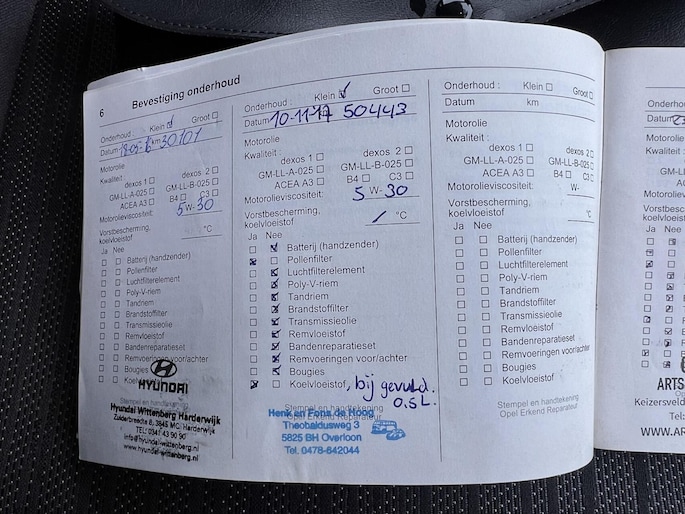 6 Bevestiging onderhoud
Onderhoud : Klein Groot
Datum km 30101
Motorolie
Kwaliteit :
dexos 1 dexos 2
GM-LL-A-025 GM-LL-B-025
ACEA A3 B4 C3
Motorolieviscositeit: 5 W- 30
Vorstbescherming, koelvloeistof °C
Ja Nee
Batterij (handzender)
Pollenfilter
Luchtfilterelement
Poly-V-riem
Tandriem
Brandstoffilter
Transmissieolie
Remvloeistof
Bandenreparatieset
Remvoeringen voor/achter
Bougies
HYUNDAI
Hyundai Wittenberg Harderwijk
Zuiderbreedte 8, 3845 MC Harderwijk
TEL: 0341 43 90 90
info@hyundai-wittenberg.nl
www.hyundai-wittenberg.nl
Onderhoud : Klein Groot
Datum 10-11-17 50443
Motorolie
Kwaliteit :
dexos 1 dexos 2
GM-LL-A-025 GM-LL-B-025
ACEA A3 B4 C3
Motorolieviscositeit: 5 W- 30
Vorstbescherming, koelvloeistof / °C
Ja Nee
Batterij (handzender)
Pollenfilter
Luchtfilterelement
Poly-V-riem
Tandriem
Brandstoffilter
Transmissieolie
Remvloeistof
Bandenreparatieset
Remvoeringen voor/achter
Bougies
Koelvloeistof, bij gevuld.
0.5 L.
Stempel en handtekening
Henk en Fons de Hoog
Theobaldusweg 3
5825 BH Overloon
Tel. 0478-642044
Onderhoud : Klein Groot
Datum km
Motorolie
Kwaliteit :
dexos 1 dexos 2
GM-LL-A-025 GM-LL-B-025
ACEA A3 B4 C3
Motorolieviscositeit: W-
Vorstbescherming, koelvloeistof °C
Ja Nee
Batterij (handzender)
Pollenfilter
Luchtfilterelement
Poly-V-riem
Tandriem
Brandstoffilter
Transmissieolie
Remvloeistof
Bandenreparatieset
Remvoeringen voor/achter
Bougies
Koelvloeistof
Stempel en handtekening
Opel Erkend Reparateur
Motorolie
Kwaliteit :
Ja Nee
ARTS
Keizersveld